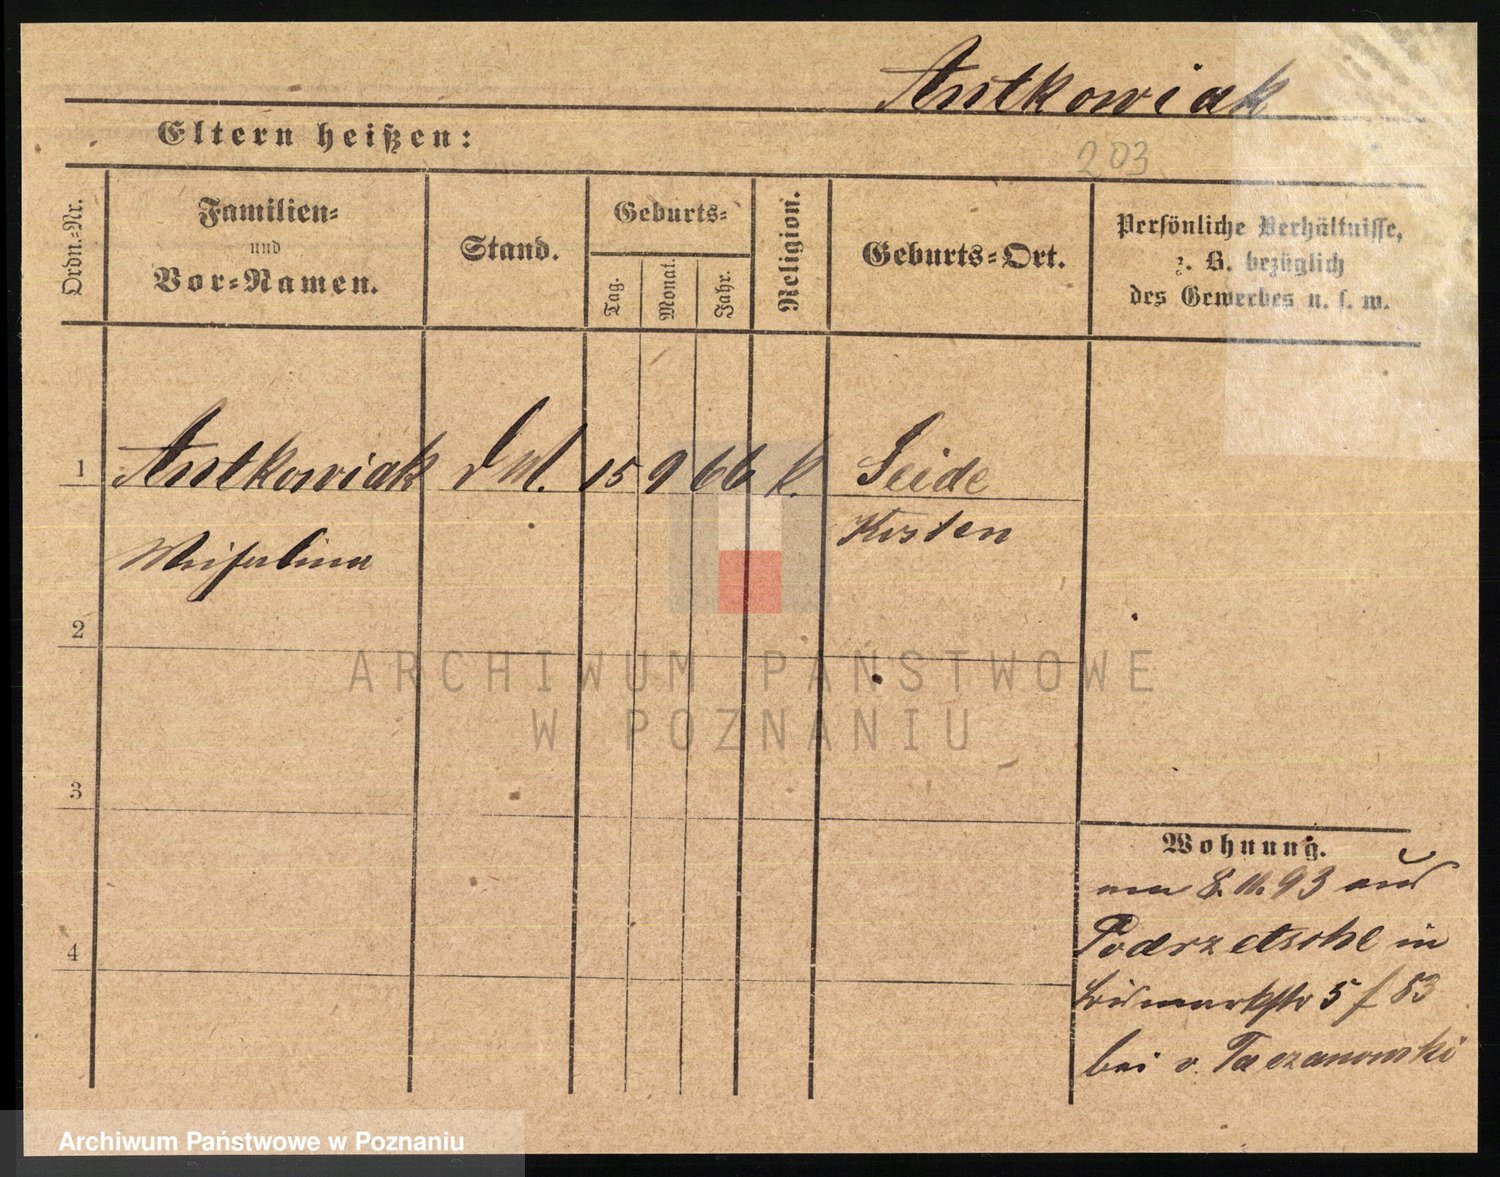 Antkowiak
Eltern heißen:
203
Ordn.-Nr.
Familien-
und
Vor-Namen.
Stand.
Geburts-
Tag.
Monat.
Jahr.
Religion.
Geburts-Ort.
Persönliche Verhältnisse,
z. B. bezüglich
des Gewerbes u. s. w.
1 Antkowiak 15 9 66 k. Seide
Kosten
2
3
4
Wohnung.
8. 11. 93 aus
in
Bismarkstr 5 f 83
bei v. Taczanowski
ARCHIWUM PAŃSTWOWE
W POZNANIU
Archiwum Państwowe w Poznaniu